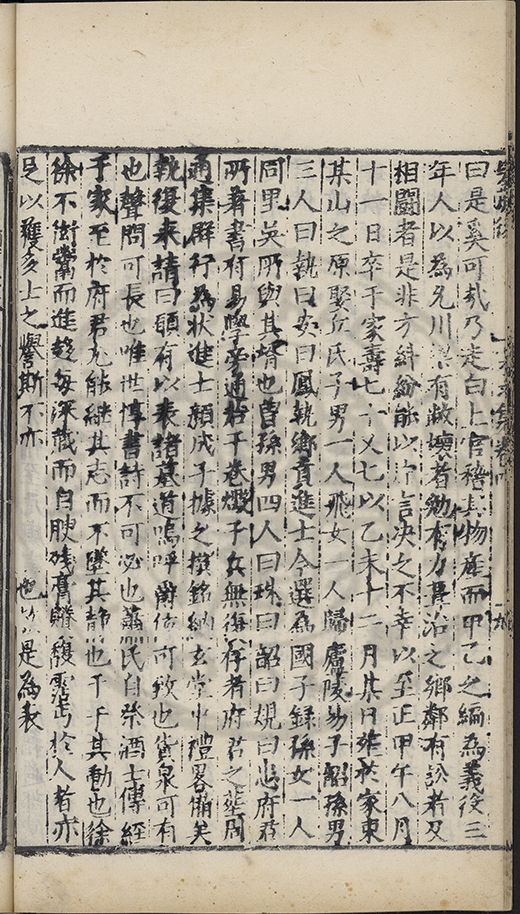 曰是奚可哉乃走白上官稽其物産而甲乙之編為義役三
年人以為允川有敝壞者勉有力葺治之鄉鄰有訟者又
相鬬者是非方紏紛能以片言決之不幸以至正甲午八月
十一日卒于家壽七十又七以乙未十二月某日葬於家東
某山之原娶丘氏子男一人飛女一人歸廬陵易子韶孫男
三人曰執曰安曰鳳執鄉貢進士今選為國子錄孫女一人
同里吳所與其壻也曾孫男四人曰珠曰韶曰規曰也府君
所著書有易學旁通若干卷燬于兵無復存者府君之葬周
通集群行為狀進士顏成子據之撰銘納玄堂中禮畧備矣
執復來請曰願有以表諸墓道嗚呼爵位可致也貨泉可有
也聲問可長也唯世惇書詩不可必也蕭氏自祭酒士傳經
于家至於府君尤能繼其志而不墜其靜也干于其動也徐
徐不衒鬻而進趍每深藏而自腴殘膏賸馥霑丐於人者亦
足以獲多士之譽斯不亦也是為表